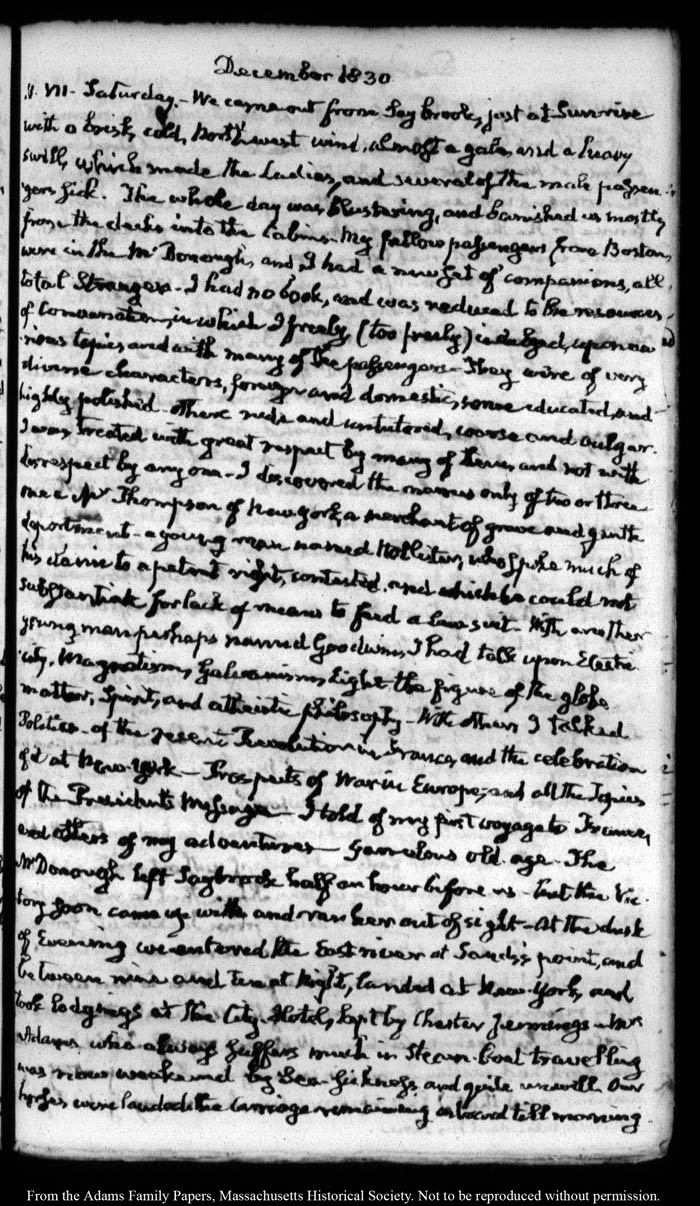 December 1830
VII. Saturday. We came out from Say brook, just at Sun-rise
with a brisk, cold, North west wind, almost a gale, and a heavy
swill, which made the Ladies, and several of the male passen-
gers sick. The whole day was blustering, and banished us mostly
from the decks into the Cabins. My fellow passengers from Boston,
were in the McDonough, and I had a new set of companions, all
total Strangers. I had no book, and was reduced to the resources
of Conversation, in which I freely (too freely) indulged, upon va
rious topics and with many of the passengers. They were of very
diverse characters, foreign and domestic, some educated, and
highly polished. others rude and untutored, coarse and vulgar.
I was treated with great respect by many of them, and not with
disrespect by any one. I discovered the names only of two or three
one a Mr Thompson of New York, a merchant of grave and gentle
deportment. a young man named Hollister, who spoke much of
his claim to a patent right, contested, and which he could not
substantiate for lack of means to feed a law suit. With another
young man perhaps named Goodwin, I had talk upon Electri
city, Magnetism, Galvanism, Light the figure of the globe
matter, Spirit, and atheistic philosophy. With others I talked
Politics. of the recent Revolution in France, and the celebration
of it at New-York. Prospects of War in Europe, and all the Topics
of the President's Message. I told of my first voyage to France,
and others of my adventures. Garrulous old age. The
McDonough left Saybrook half an hour before us. but the Vic-
tory soon came up with and ran her out of sight. At the dusk
of Evening we entered the East river at Sands's point, and
between nine and ten at Night, landed at New-York, and
took lodgings at the City Hotel, kept by Chester Jennings. Mrs
Adams who always suffers much in Steam-boat travelling
was now weakened by Sea-Sickness and quite unwell. Our
horses were landed the Carriage remaining on board till morning.
From the Adams Family Papers, Massachusetts Historical Society. Not to be reproduced without permission.